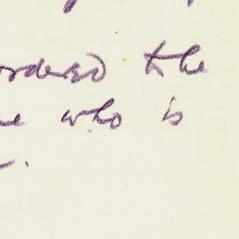 ordered the
who is